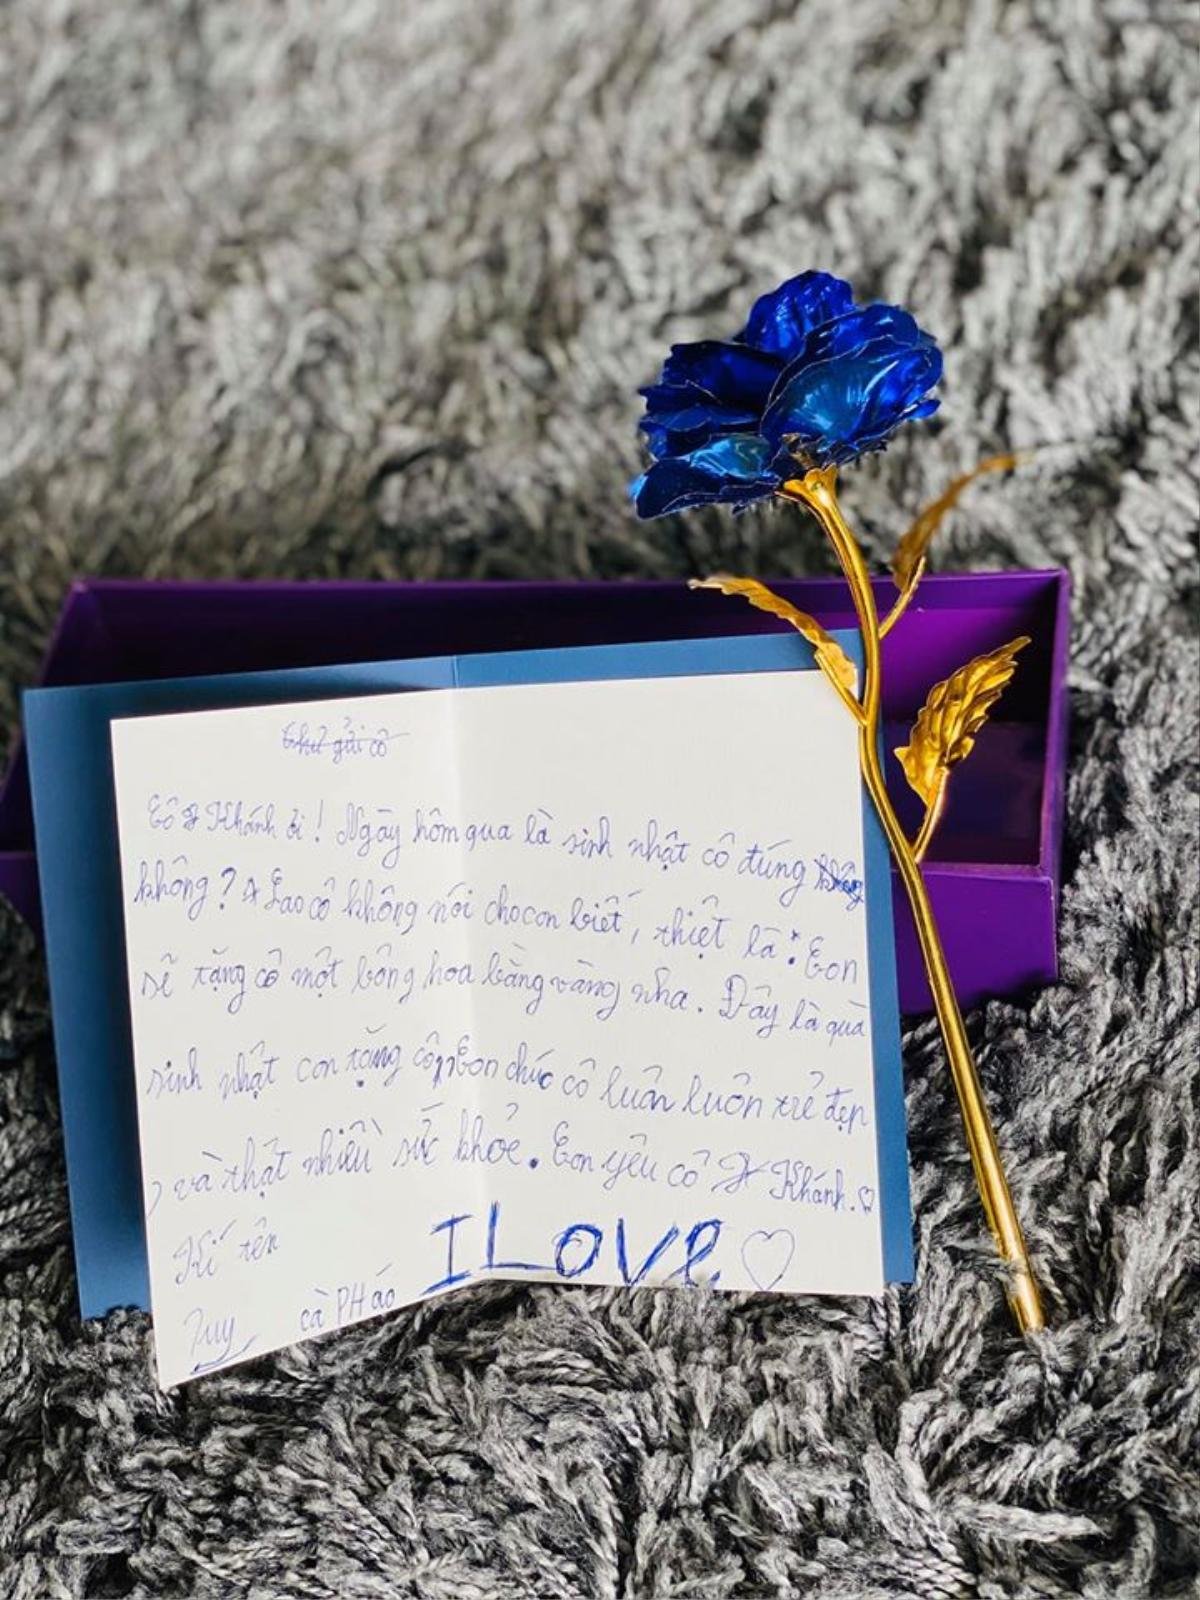 Thư gửi cô
Cô Khánh ơi! Ngày hôm qua là sinh nhật cô đúng
không? Sao cô không nói cho con biết, thiệt là: Con
sẽ tặng cô một bông hoa bằng vàng nha. Đây là quà
sinh nhật con tặng cô, Con chúc cô luôn luôn trẻ đẹp
, và thật nhiều sức khỏe. Con yêu cô Khánh.♡
Kí tên
I LOVE ♡
cà PHáo